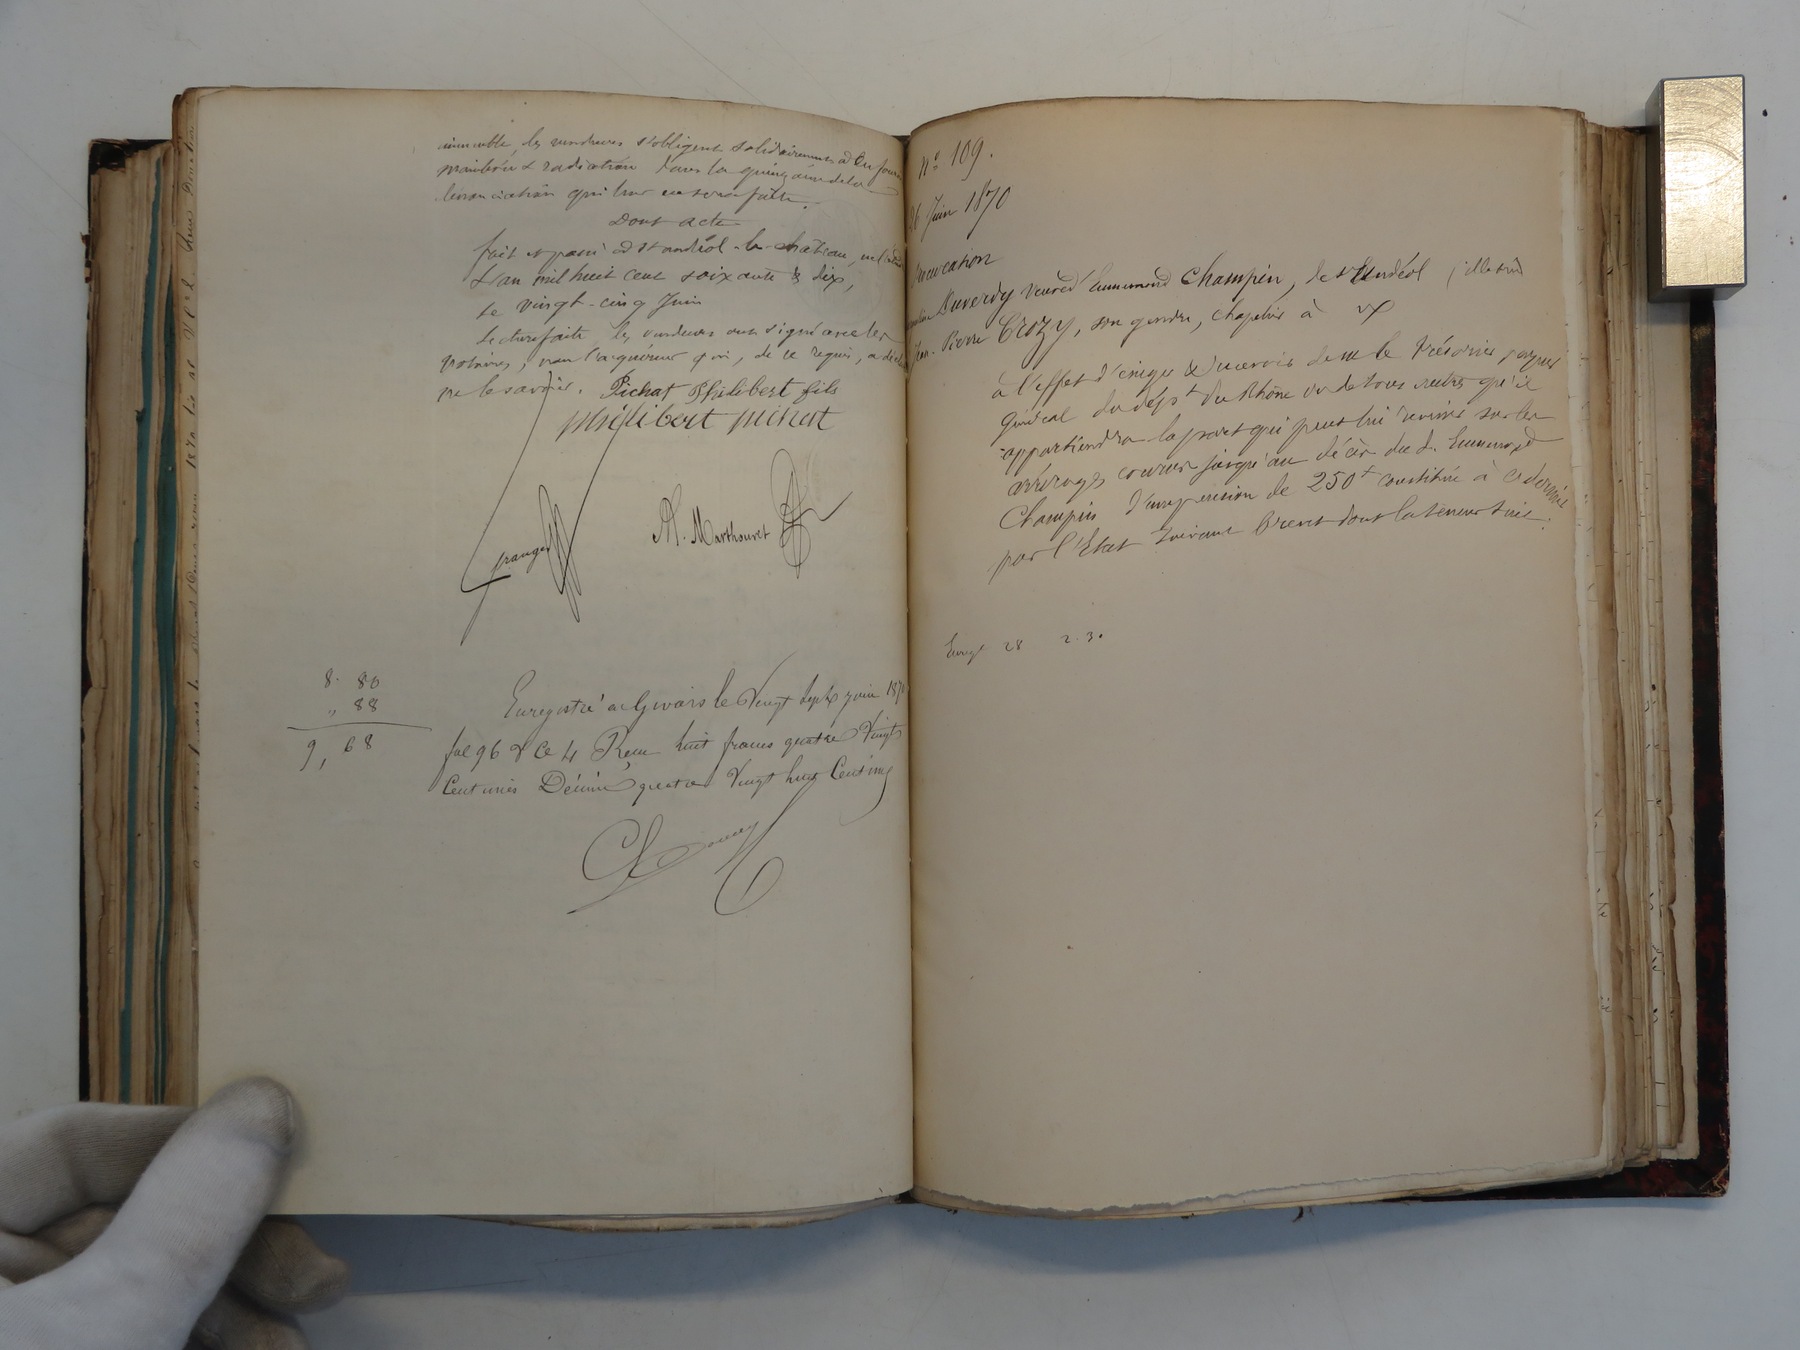 immeuble, les vendeurs s'obligent solidairement à en fournir
mainlevée & radiation dans la quinzaine de la
dénonciation qui leur en sera faite.
Dont acte
fait et passé à St andéol-le-château, en l'étude
L'an mil huit cent soixante & dix,
Le vingt-cinq Juin
Lecture faite les vendeurs ont signé avec les
notaires, non l'acquéreur qui, de ce requis, a déclaré
ne le savoir. Pichat Philibert fils
philibert pichat
granger
A. Marthouret
8. 80
„ 88
9, 68
Enregistré à Givors le Vingt Sept juin 1870
fol 96 Vo Ce 4 Reçu huit francs quatre Vingts
Centimes Décime quatre Vingt huit Centimes
No 109.
26 Juin 1870
Procuration
Duverdy veuve d'Ennemond Champin, de St Andéol
Jean-Pierre Crozy, son gendre, Chapelier à
à l'effet d'exiger & recevoir de M le Trésorier payeur
général du dépt du Rhône ou de tous autres qu'il
appartiendra la part qui peut lui revenir sur les
arrérages courus jusqu'au décès du d. Ennemond
Champin d'une pension de 250f constituée à ce dernier
par l'Etat suivant Brevet dont la teneur suit:
Enregt 28 2.30